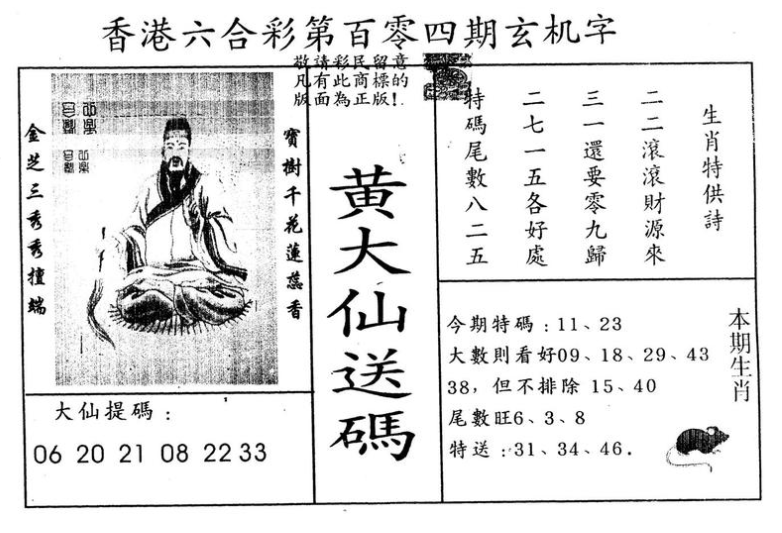 香港六合彩第百零四期玄机字
敬請彩民留意
凡有此商標的
版面為正版！
生肖特供詩
二二滾滾財源來
三一還要零九歸
二七一五各好處
特碼尾數八二五
黄大仙送碼
寳樹千花蓮蕊香
金芝三秀秀擅端
大仙提碼：
06 20 21 08 22 33
本期生肖
今期特碼：11、23
大數則看好09、18、29、43
38，但不排除 15、40
尾數旺6、3、8
特送：31、34、46.